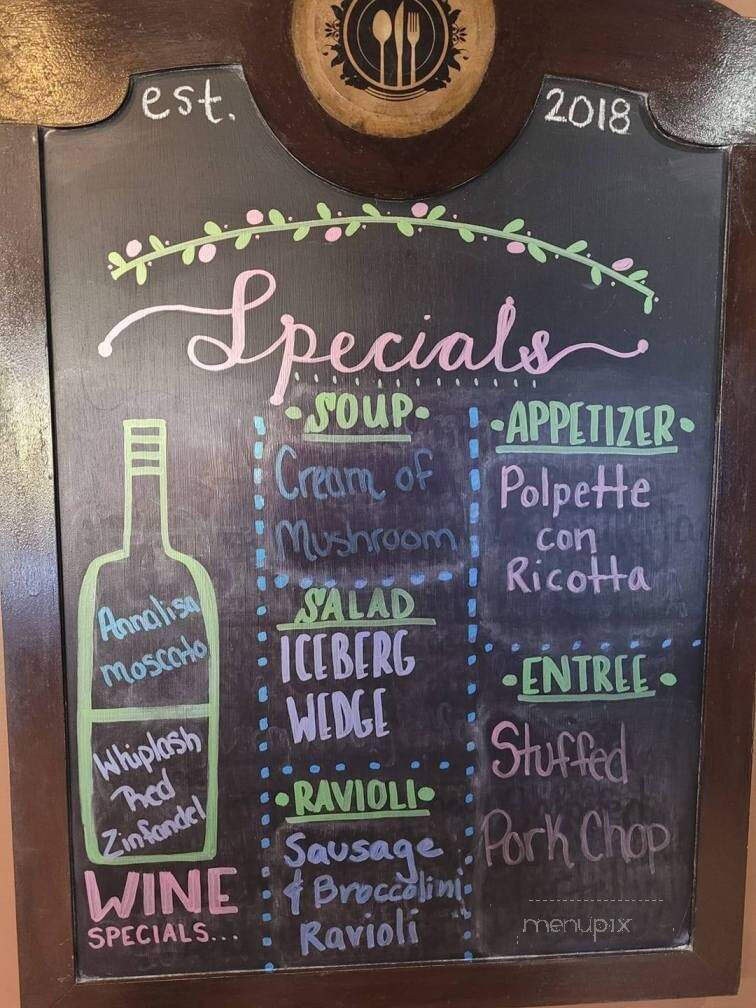 est. 2018
Specials
•SOUP•
Cream of
Mushroom
SALAD
ICEBERG
WEDGE
•RAVIOLI•
Sausage
& Broccolini
Ravioli
•APPETIZER•
Polpette
con
Ricotta
•ENTREE•
Stuffed
Pork Chop
Annalisa
moscato
Whiplash
Red
Zinfandel
WINE
SPECIALS...
menupix